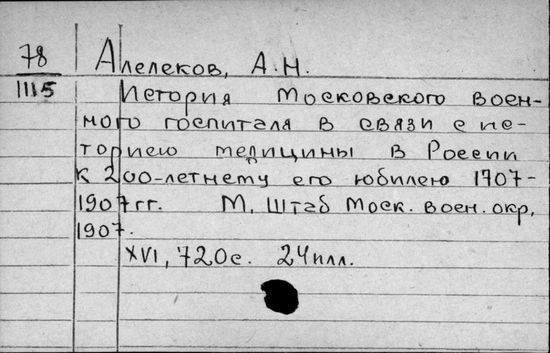 78
1115
Алелеков, А.Н.
История Московского воен-
ного госпиталя в связи с ис-
торией медицины в России
к 200-летнему его юбилею 1707-
1907 гг. М. Штаб Моск. воен. окр,
1907.
XVI, 720с. 24илл.